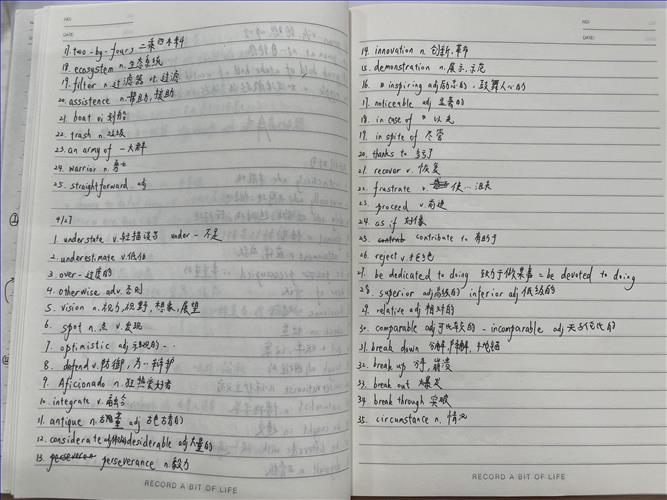 17. two-by-fours 二乘四木料
18. ecosystem n.生态系统
19. filter n.过滤器 vt.过滤
20. assistence n.帮助,援助
21. boat vi 划船
22. trash n.垃圾
23. an army of 一大群
24. warrior n.勇士
25. straightforward adj
9/27
1. understate v.轻描淡写 under- 不足
2. underestimate v.低估
3. over- 过度的
4. otherwise adv.否则
5. vision n.视力,视野,想象,展望
6. spot n.点 v.发现
7. optimistic adj 乐观的
8. defend v.防御,为…辩护
9. Aficionado n.狂热爱好者
10. integrate v.融合
11. antique n.古董 adj 古色古香的
12. considerate adj desiderable adj 大量的
13. perseverance n.毅力
RECORD A BIT OF LIFE
NO:
DATE:
14. innovation n.创新,革新
15. demonstration n.展示,示范
16. inspiring adj 励志的,鼓舞人心的
17. noticeable adj 显著的
18. in case of 以免
19. in spite of 尽管
20. thanks to 多亏了
21. recover v.恢复
22. frustrate v. 使…沮丧
23. proceed v.前进
24. as if 好像
25. contribute to 有助于
26. reject v.拒绝
27. be dedicated to doing 致力于做某事 = be devoted to doing
28. superior adj 高级的 inferior adj 低级的
29. relative adj 相对的
30. comparable adj 可比较的 - incomparable adj 无与伦比的
31. break down 分解
32. break up 分手,崩溃
33. break out 爆发
34. break through 突破
35. circumstance n.情况
RECORD A BIT OF LIFE